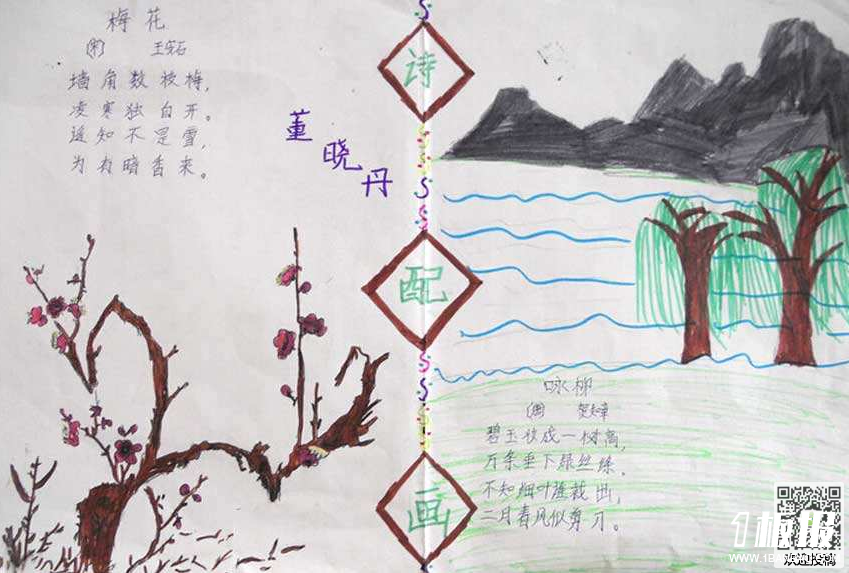 梅花
(宋) 王安石
墙角数枝梅，
凌寒独自开。
遥知不是雪，
为有暗香来。
董晓丹
诗
配
画
咏柳
贺知章
碧玉妆成一树高，
万条垂下绿丝绦。
不知细叶谁裁出，
二月春风似剪刀。
1板报
欢迎投稿